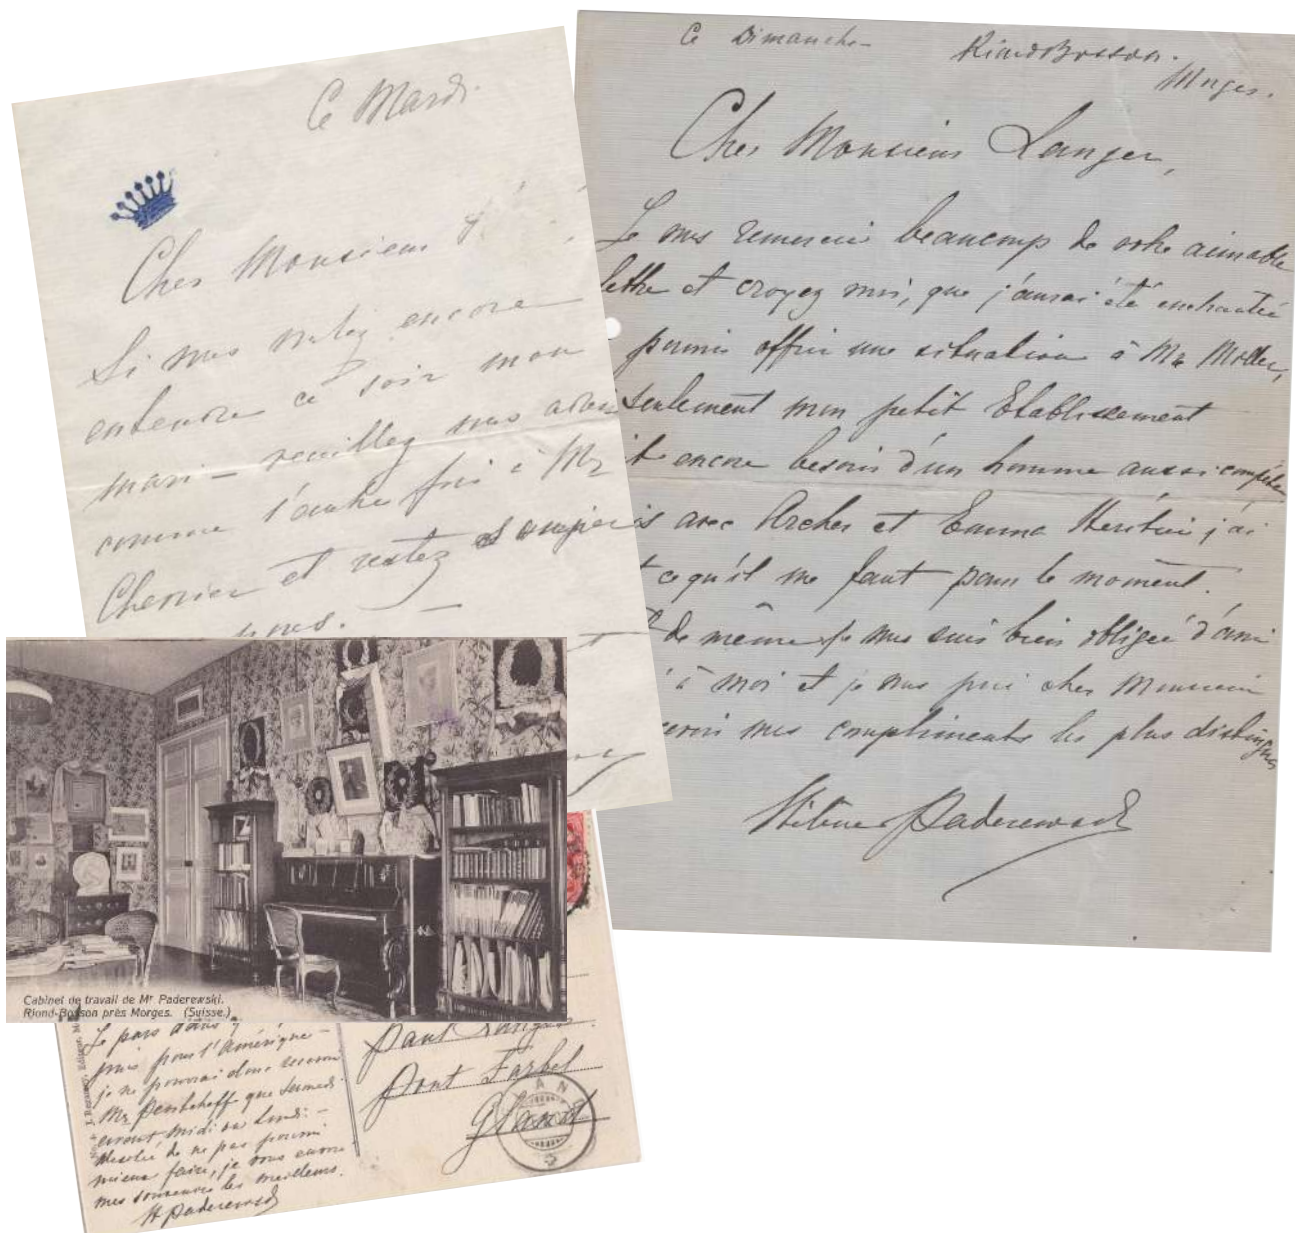 Ce Mardi.
Cher Monsieur
Si vous voulez encore
entendre ce soir mon
mari – veuillez vous
comme l'autre fois à Mr
Chenrier et restez
vous. –
Ce Dimanche –
Riond Bosson.
Morges.
Cher Monsieur Langer,
Je vous remercie beaucoup de votre aimable
lettre et croyez moi, que j'aurai été enchantée
pouvoir offrir une situation à Mr Moller,
seulement mon petit Etablissement
encore besoin d'un homme aussi
avec Archer et Emma j'ai
ce qu'il me faut pour le moment.
de même je vous suis bien obligée d'avoir
à moi et je vous prie cher Monsieur
mes compliments les plus distingués
Hélène Paderewski
Cabinet de travail de Mr Paderewski.
Riond-Bosson près Morges. (Suisse.)
Je pars dans
pour l'Amérique –
je ne pourrai donc recevoir
Mr que Samedi
avant midi ou Lundi –
désolée de ne pas pouvoir
mieux faire, je vous envoie
mes souvenirs les meilleurs.
H Paderewski
Paul Langer
Pont Farbel
Gland